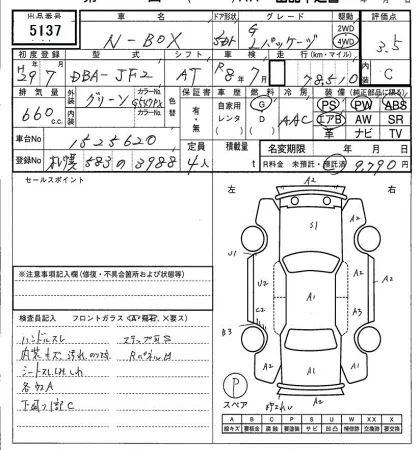 出品番号 車名 ドア形状 グレード 駆動 評価点
5137 N-BOX 5D G Lパッケージ 2WD 4WD 3.5
初度登録 型式 シフト 車検 走行(km・マイル) 内装
H29 7 DBA-JF2 AT R8年7月 78510 C
排気量 外装 グリーン カラーNo. 色替 保証書 車歴 燃料 冷房 装備(純正部品に限る)
660c.c. 内装 カラーNo. 有・無 自家用 レンタ ( ) G D ( ) AAC PS PW ABS
エアB AW SR
革 ナビ TV
車台No 1525620 定員 積載量 名変期限 年 月 日
登録No 札幌 583の3988 4人 t R料金 未預託・預託済 9,790円
セールスポイント
左 右
※注意事項記入欄(修復・不具合箇所および状態等)
検査員記入 フロントガラス(A・飛石・×要ス)
ハンドルスレ
内装キズ 汚れ
シートスレ シミ
各ウA
下回り1部C
S1
U1
A2
U2
A1
A1
C2
A3
B3
A2
A2
A1
A2
P
スペア
A B C P S U W X XX
線キズ 要板金 腐蝕 要塗装 サビ 凹凸 補修跡 交換跡 要交換